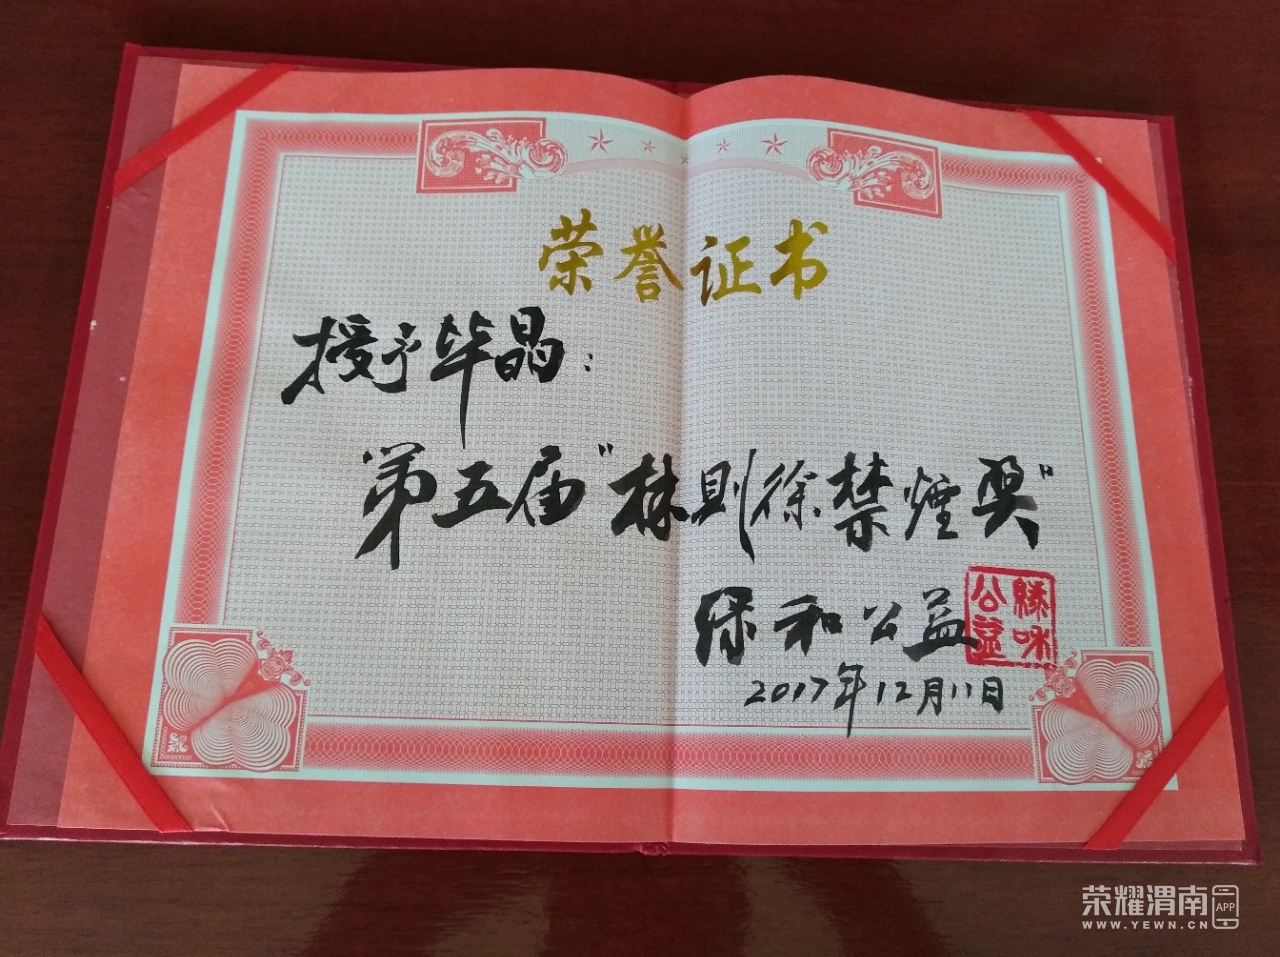 荣誉证书
授予毕晶：
第五届“林则徐禁煙奖”
绿和公益
绿和公益
2017年12月11日
荣耀渭南APP
WWW.YEWN.CN